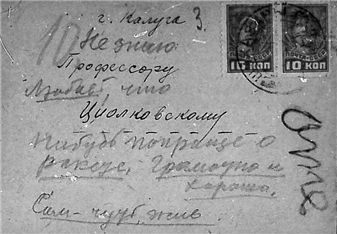 г. Калуга 3.
Не знаю
Профессору
что
Циолковскому
Нибудь попроще о
ракете, Грамотно и
хорошо.
Сам - чуть жив.
15 КОП 10 КОП